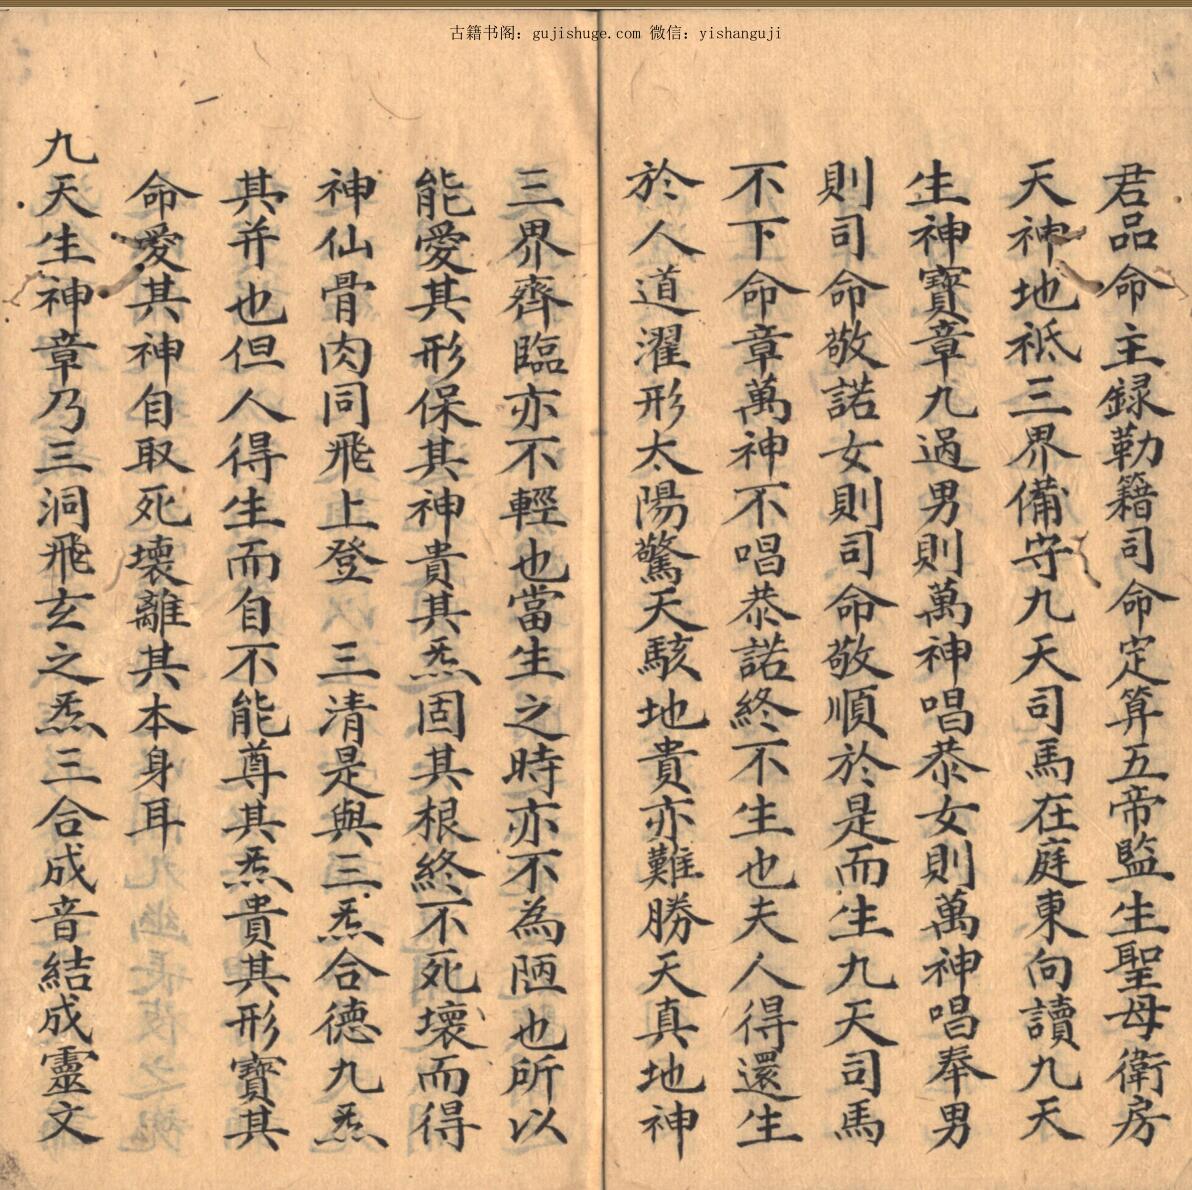 古籍书阁：gujishuge.com 微信：yishanguji
君品命主録勒籍司命定算五帝監生聖母衛房
天神地祗三界備守九天司馬在庭東向讀九天
生神寶章九過男則萬神唱恭女則萬神唱奉男
則司命敬諾女則司命敬順於是而生九天司馬
不下命章萬神不唱恭諾終不生也夫人得還生
於人道濯形太陽驚天駭地貴亦難勝天真地神
三界齊臨亦不輕也當生之時亦不為陋也所以
能愛其形保其神貴其炁固其根終不死壞而得
神仙骨肉同飛上登以三清是與三炁合德九炁
其并也但人得生而自不能尊其炁貴其形寶其
命愛其神自取死壞離其本身耳
九天生神章乃三洞飛玄之炁三合成音結成靈文